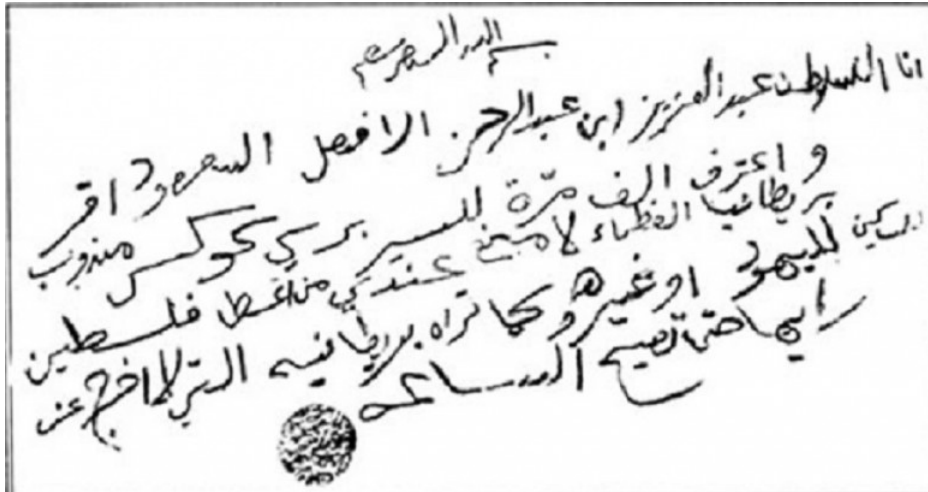 بسم الله الرحمن الرحيم
انا السلطان عبد العزيز ابن عبد الرحمن الافيصل السعود اقر
و اعترف الف مرّة للسير برسي كوكس مندوب
بريطانيا العظماء لا مانع عندي من اعطي فلسطين
المساكين لليهود او غيرهم وكما تراه بريطانيه التي لا اخرج عن
رايها حتى تصيح الساعه